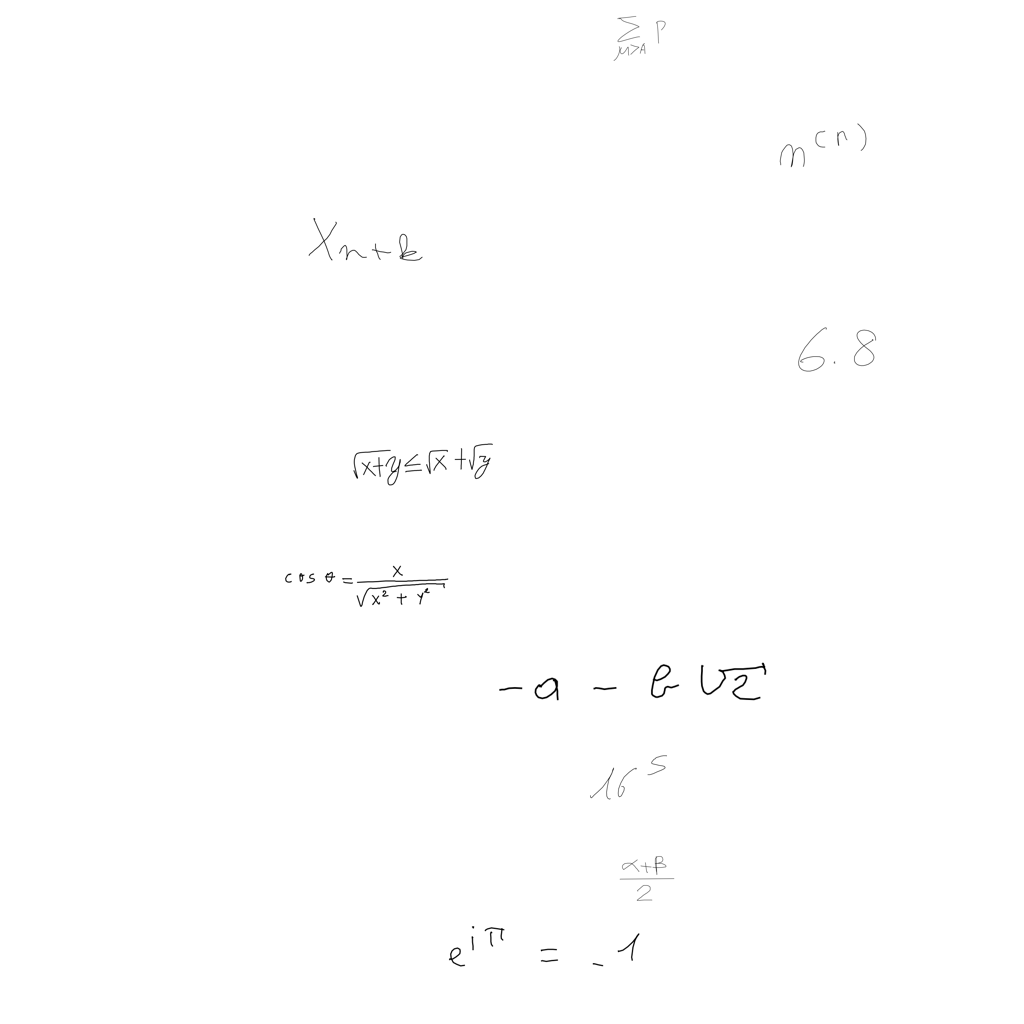 \sum_{\mu>A} P
n^{(n)}
X_{n+k}
6.8
\sqrt{x+y} \leq \sqrt{x} + \sqrt{y}
\cos \theta = \frac{x}{\sqrt{x^2 + y^2}}
-a - b\sqrt{2}
16^5
\frac{\alpha+\beta}{2}
e^{i\pi} = -1